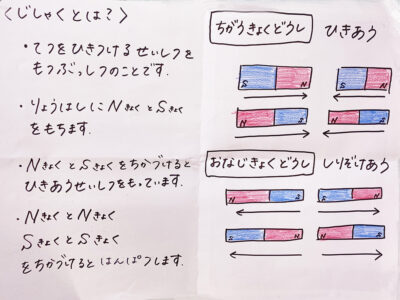 〈じしゃくとは?〉
・てつをひきつけるせいしつを
もつぶっしつのことです.
・りょうはしにNきょくとSきょく
をもちます.
・NきょくとSきょくをちかづけると
ひきあうせいしつをもっています.
・NきょくとNきょく
SきょくとSきょく
をちかづけるとはんぱつします.
ちがうきょくどうし ひきあう
S N S N
N S N S
おなじきょくどうし しりぞけあう
N S S N
S N N S